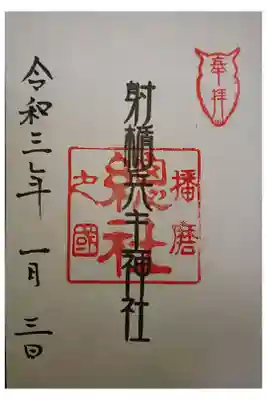 奉拝
射楯兵主神社
播磨
之國
總社
令和三年 一月 三日